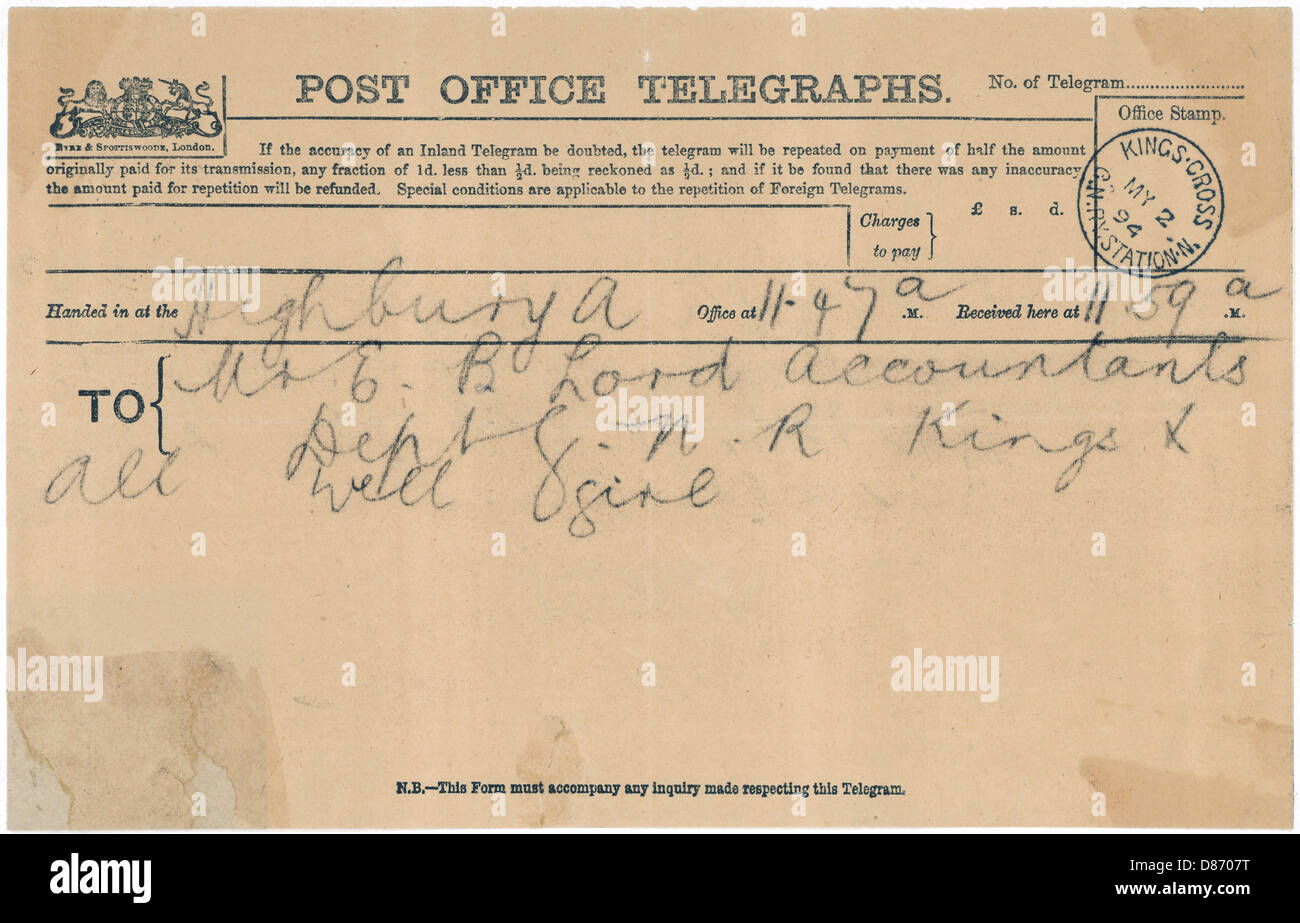 POST OFFICE TELEGRAPHS.
No. of Telegram
Office Stamp.
EYRE & SPOTTISWOODE, LONDON.
If the accuracy of an Inland Telegram be doubted, the telegram will be repeated on payment of half the amount
originally paid for its transmission, any fraction of 1d. less than ½d. being reckoned as ½d.; and if it be found that there was any inaccuracy
the amount paid for repetition will be refunded. Special conditions are applicable to the repetition of Foreign Telegrams.
KINGS·CROSS
MY 2
94
STATION·N.
Charges to pay } £ s. d.
Handed in at the Highbury A Office at 11.47 a .M. Received here at 11.59 a .M.
TO { Mr E. B Lord Accountants
Dept G. N. R Kings X
All well girl
N.B.—This Form must accompany any inquiry made respecting this Telegram.
alamy
Image ID: D8707T
www.alamy.com